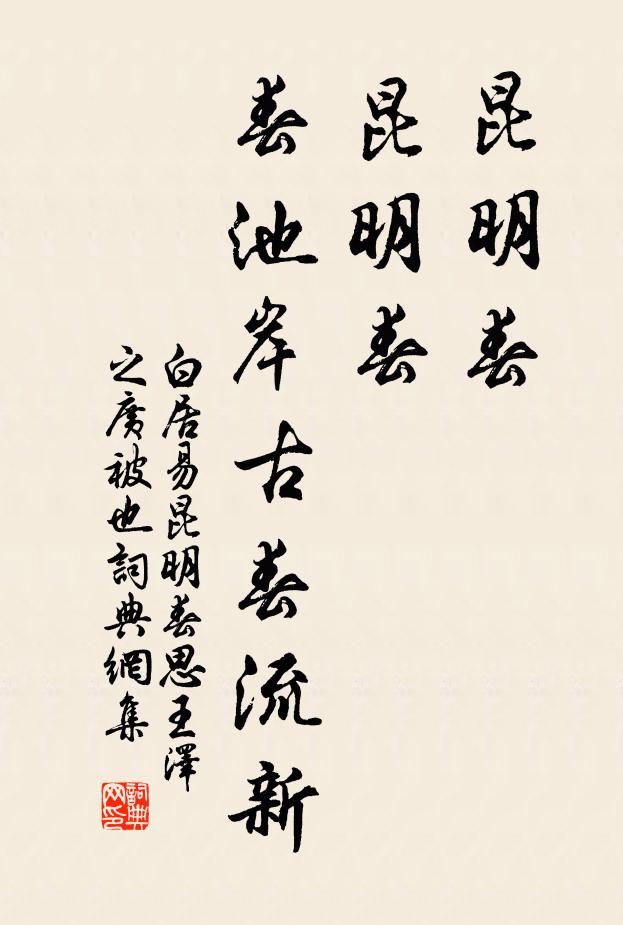 昆明春
昆明春
春池岸古春流新
白居易昆明春思王澤
之廣被也詞典網集
詞典
网印